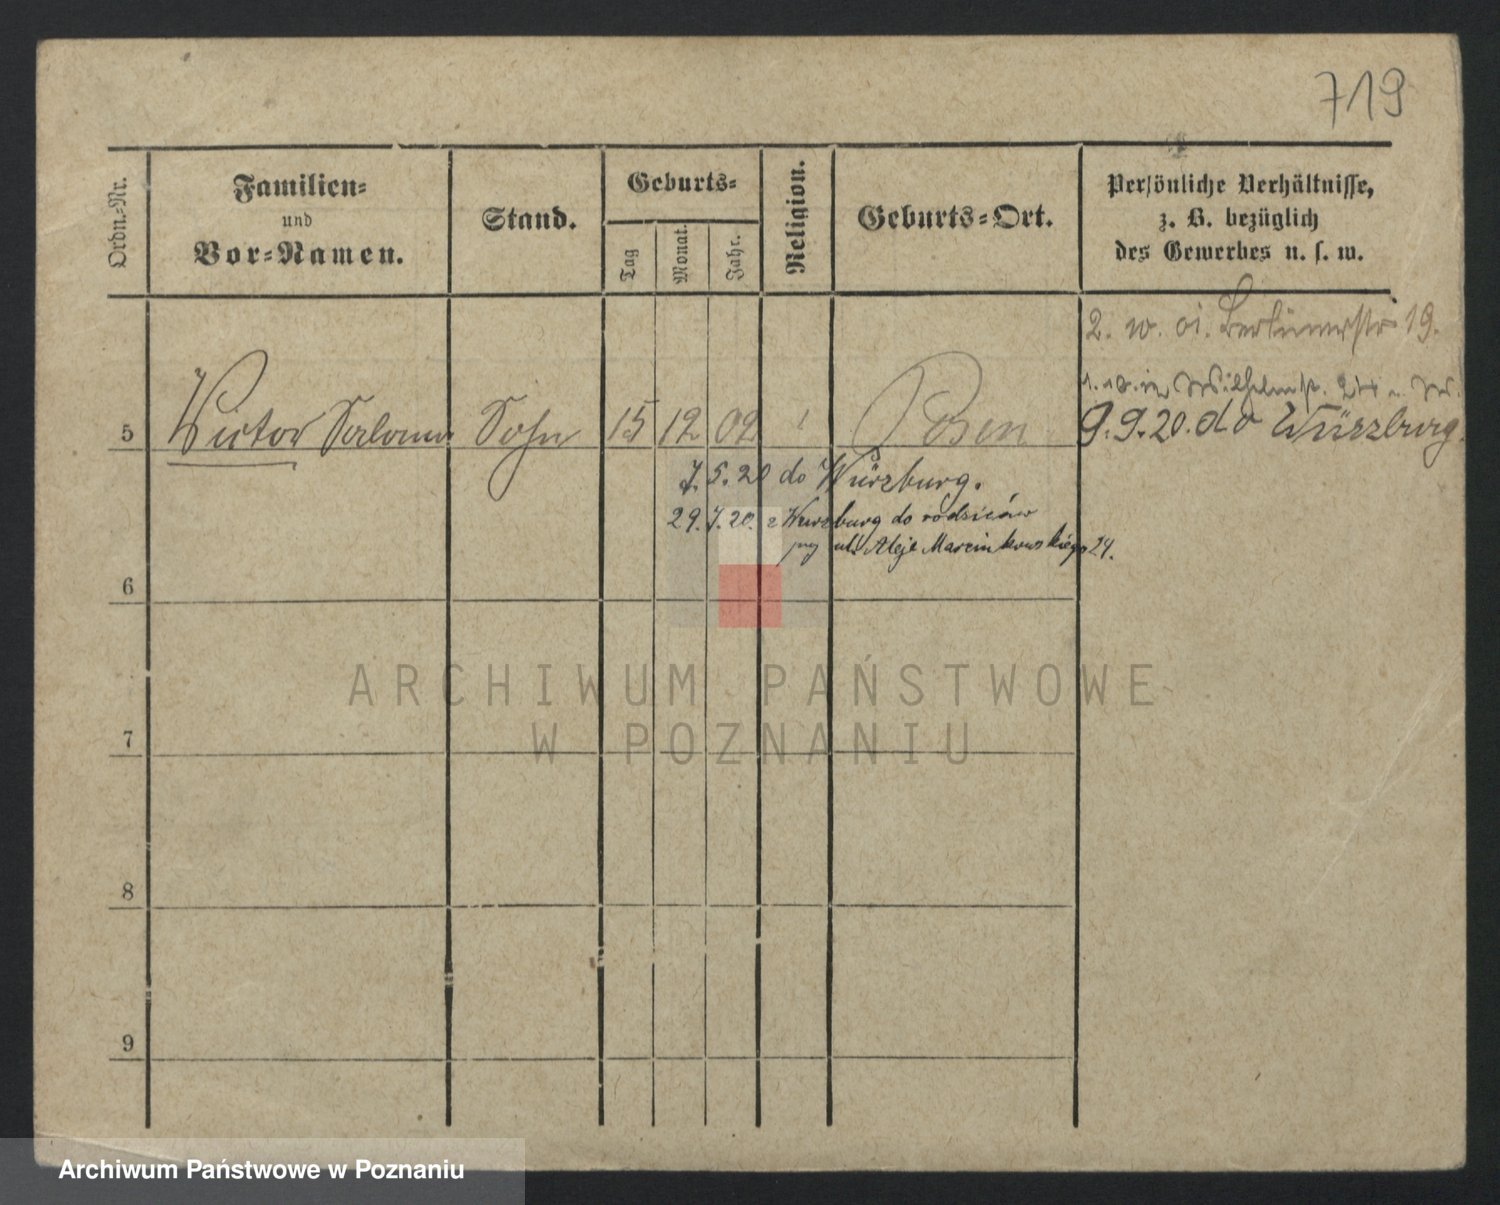 719
Ordn.-Nr.
Familien-
und
Vor-Namen.
Stand.
Geburts-
Tag
Monat.
Jahr.
Religion.
Geburts-Ort.
Persönliche Verhältnisse,
z. B. bezüglich
des Gewerbes u. s. w.
2. 10. 01. Berlinerstr 19.
Wilhelmstr.
5 Victor Salomon Sohn 15 12 02 Posen 9.9.20. do Würzburg.
7.5.20 do Würzburg.
29.7.20. z Wurzburg do rodziców
przy ul. Aleje Marcinkowskiego 24.
6
7
8
9
ARCHIWUM PAŃSTWOWE
W POZNANIU
Archiwum Państwowe w Poznaniu